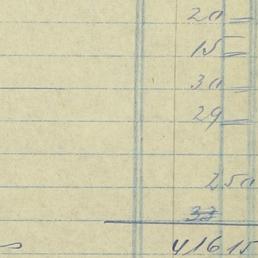 20 =
15 =
30 =
29 =
2 50
416 15